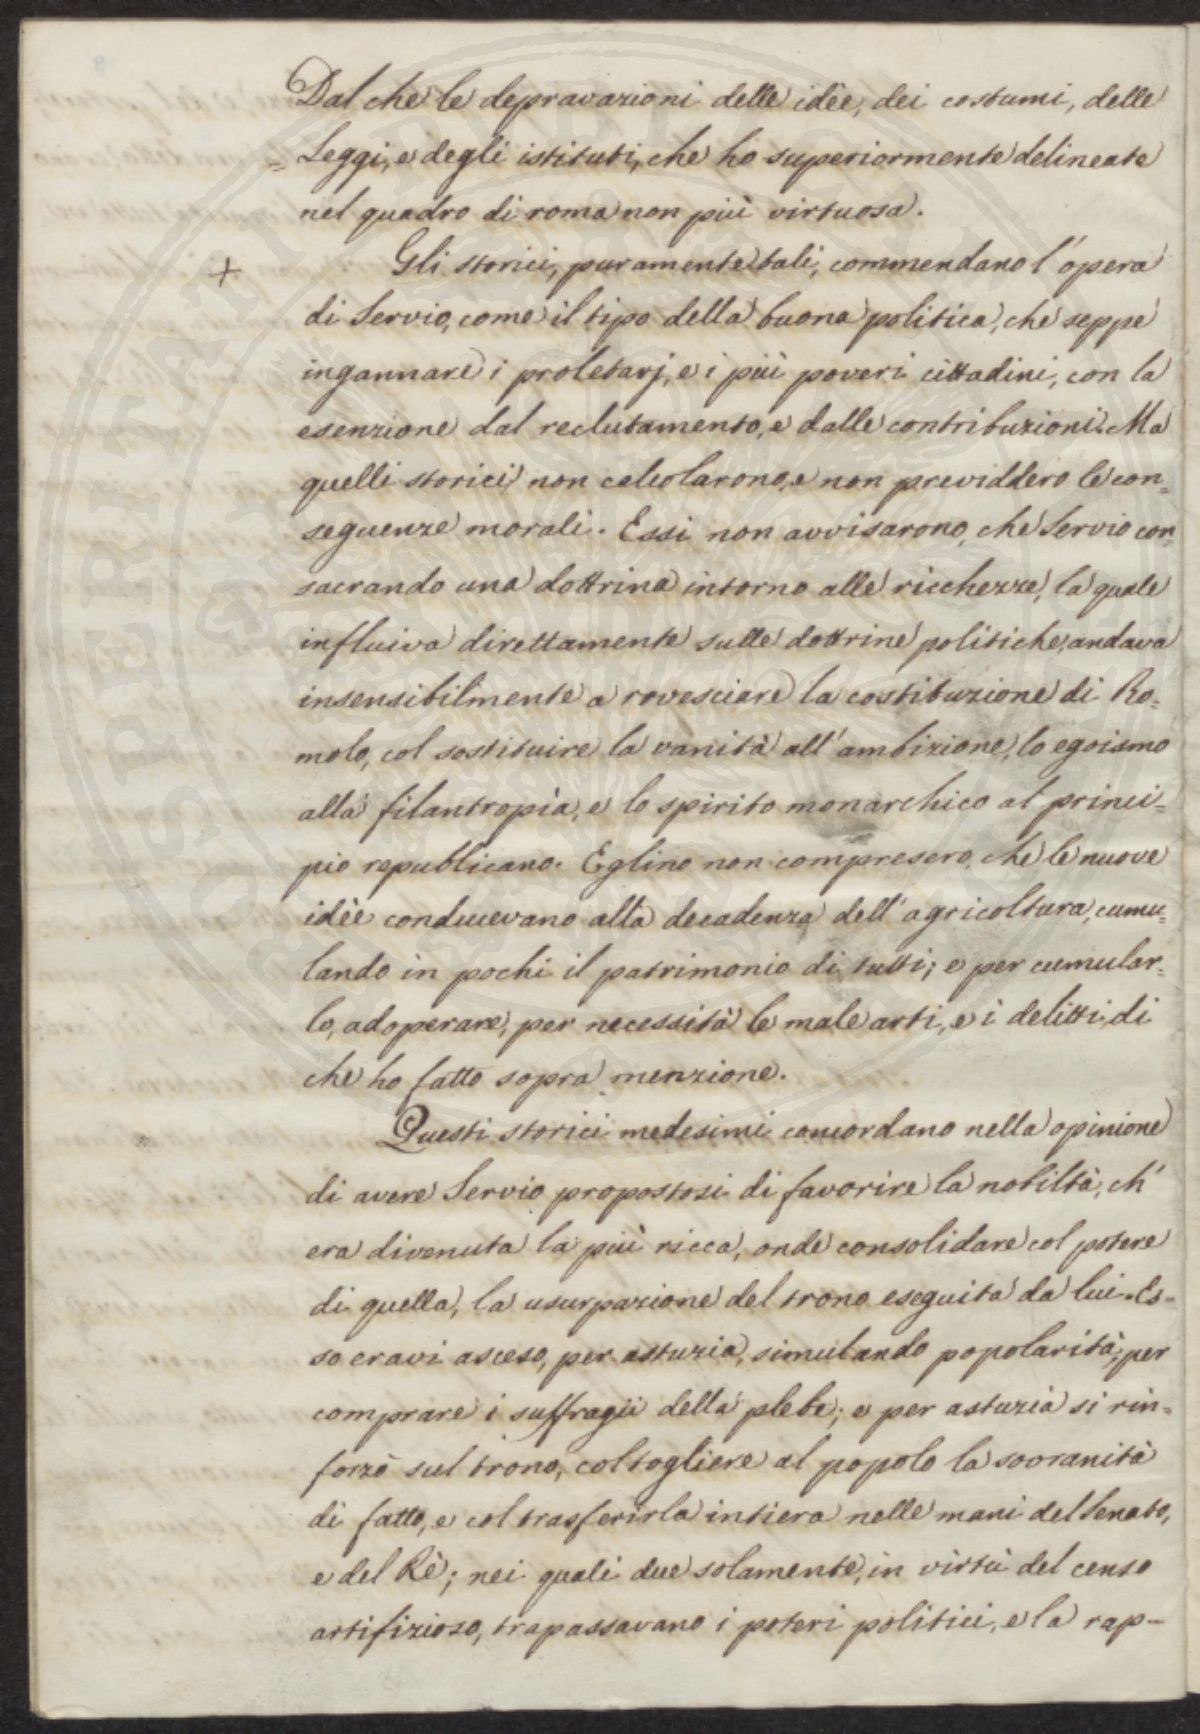 Dal che le depravazioni delle idèe, dei costumi, delle
= Leggi, e degli istituti, che ho superiormente delineate
nel quadro di roma non più virtuosa.
+ Gli storici, puramente tali, commendano l'opera
di Servio, come il tipo della buona politica, che seppe
ingannare i proletarj, e i più poveri cittadini, con la
esenzione dal reclutamento, e dalle contribuzioni. Ma
quelli storici non calcolarono, e non previddero le con=
seguenze morali. Essi non avvisarono, che Servio con=
sacrando una dottrina intorno alle ricchezze, la quale
influiva direttamente sulle dottrine politiche, andava
insensibilmente a rovesciare la costituzione di Ro=
molo, col sostituire la vanità all'ambizione, lo egoismo
alla filantropìa, e lo spirito monarchico al princi=
pio republicano. Eglino non compresero, che le nuove
idèe conducevano alla decadenza dell'agricoltura, cumu=
lando in pochi il patrimonio di tutti; e per cumular=
lo, adoperare, per necessità le male arti, e i delitti, di
che ho fatto sopra menzione.
Questi storici medesimi concordano nella opinione
di avere Servio propostosi di favorire la nobiltà, ch'
era divenuta la più ricca, onde consolidare col potere
di quella, la usurpazione del trono eseguita da lui. Es=
so eravi asceso, per astuzia, simulando popolarità, per
comprare i suffragii della plebe; e per astuzia si rin=
forzò sul trono, col togliere al popolo la sovranità
di fatto, e col trasferirla intiera nelle mani del Senato,
e del Rè; nei quali due solamente, in virtù del censo
artifizioso, trapassavano i poteri politici, e la rap=